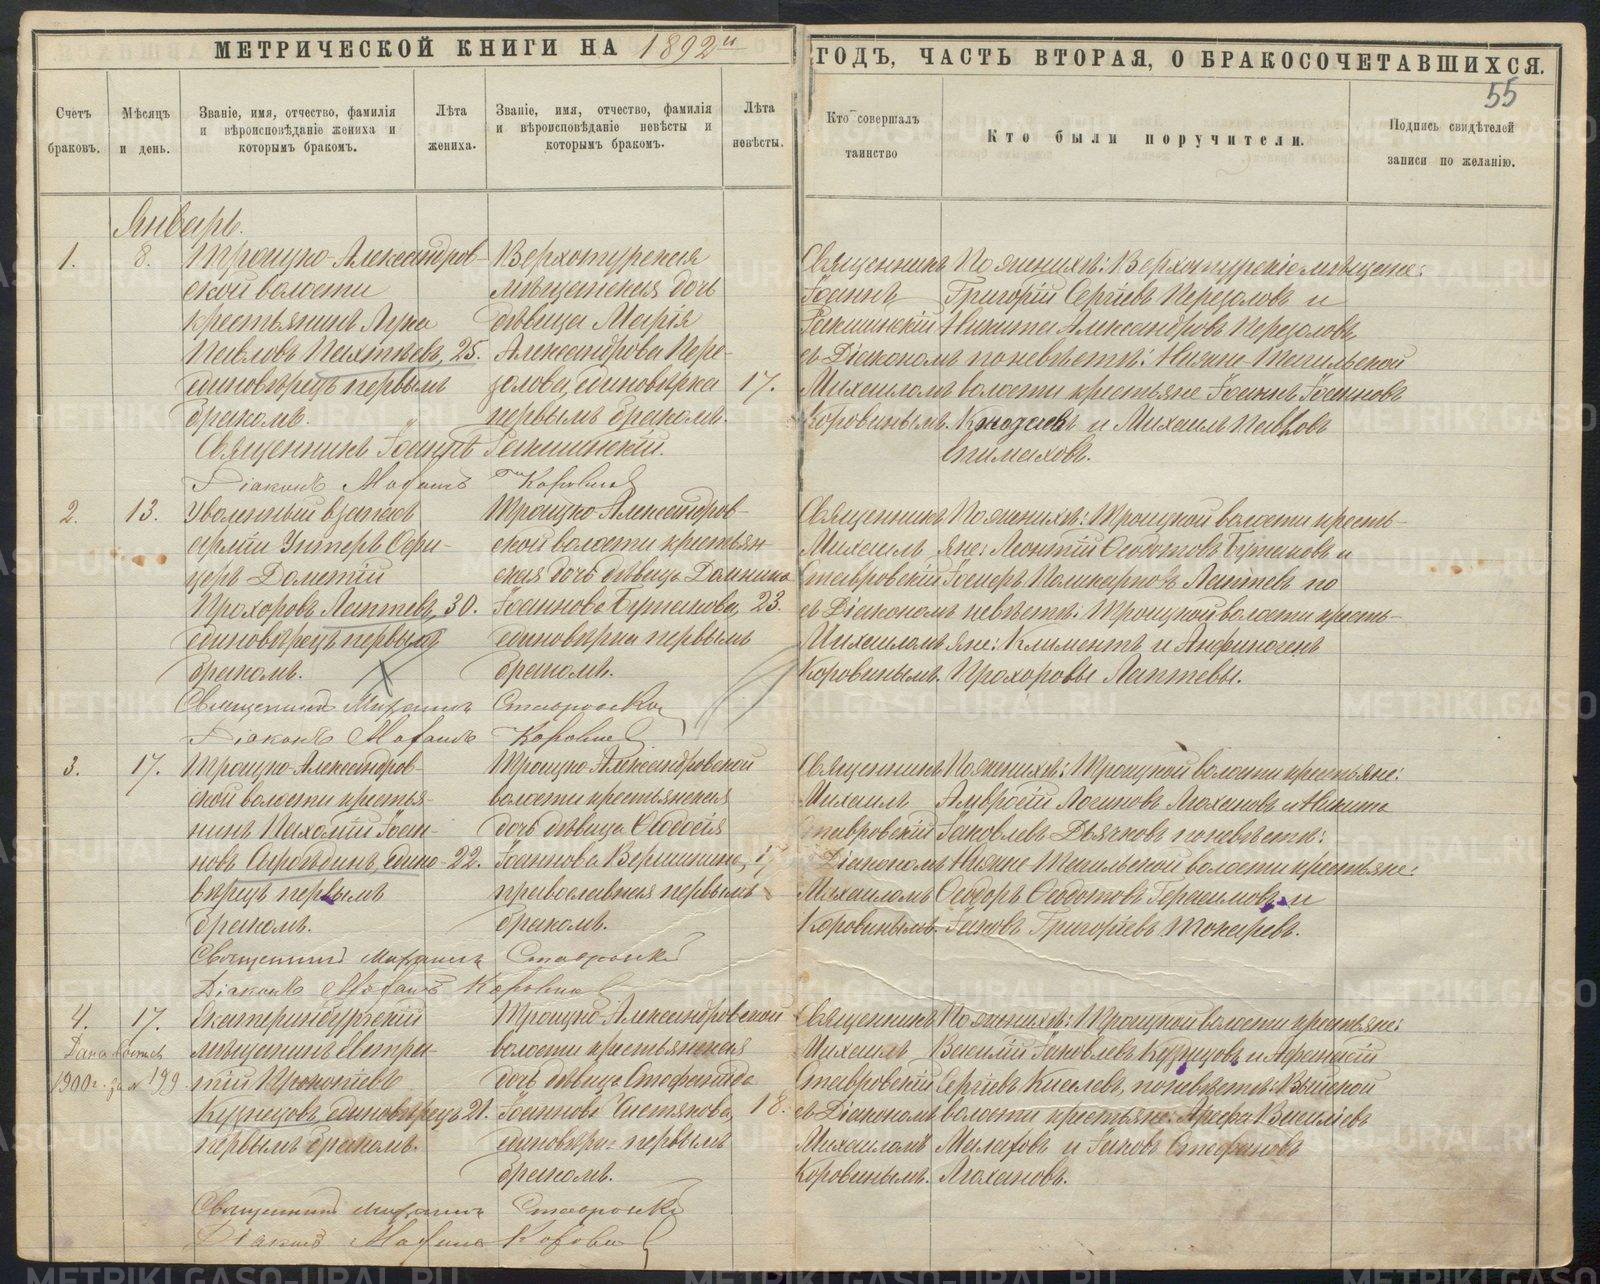 МЕТРИЧЕСКОЙ КНИГИ НА 1892й
ГОДЪ, ЧАСТЬ ВТОРАЯ, О БРАКОСОЧЕТАВШИХСЯ.
55
Счетъ браковъ.
Мѣсяцъ и день.
Званіе, имя, отчество, фамилія
и вѣроисповѣданіе жениха и
которымъ бракомъ.
Лѣта жениха.
Званіе, имя, отчество, фамилія
и вѣроисповѣданіе невѣсты и
которымъ бракомъ.
Лѣта невѣсты.
Кто совершалъ таинство
Кто были поручители.
Подпись свидѣтелей
записи по желанію.
Январь.
1.
8.
Троицко-Александров-
ской волости
крестьянинъ Лука
Павловъ Пахтѣевъ, 25.
единовѣрецъ первымъ
бракомъ.
Верхотурская
мѣщанская дочь
дѣвица Марія
Александрова Пере-
золова, единовѣрка 17.
первымъ бракомъ.
Священникъ
Іоаннъ
Ракшинскій
съ Діакономъ
Михаиломъ
Коровинымъ.
По женихѣ: Верхотурскіе мѣщане:
Григорій Сергіевъ Перезоловъ и
Никита Александровъ Перезоловъ,
по невѣстѣ: Нижне-Тагильской
волости крестьяне Іоаннъ Іоанновъ
и Михаилъ Павловъ
Священникъ Іоаннъ Ракшинскій.
Діаконъ Михаилъ Коровинъ
2.
13.
Уволенный въ запасъ
арміи Унтеръ Офи-
церъ Дометій
Прохоровъ Лаптевъ, 30.
единовѣрецъ первымъ
бракомъ.
Троицко-Александров-
ской волости крестьян
ская дочь дѣвица Домника
Іоаннова Бутакова, 23.
единовѣрка первымъ
бракомъ.
Священникъ
Михаилъ
Ставровскій
съ Діакономъ
Михаиломъ
Коровинымъ.
По женихѣ: Троицкой волости кресть-
яне: Леонтій Ѳедотовъ Бутаковъ и
Поликарповъ Лаптевъ по
невѣстѣ: Троицкой волости кресть-
яне: Климентъ и Анфиногенъ
Прохоровы Лаптевы.
Священникъ Михаилъ Ставровскій
Діаконъ Михаилъ Коровинъ
3.
17.
Троицко-Александров-
ской волости крестья-
нинъ Пахомій Іоан-
новъ едино- 22.
вѣрецъ первымъ
бракомъ.
Троицко-Александровской
волости крестьянская
дочь дѣвица Ѳеодосія
Іоаннова Вершинина,
православная первымъ
бракомъ.
Священникъ
Михаилъ
Ставровскій
Діакономъ
Михаиломъ
Коровинымъ.
По женихѣ: Троицкой волости крестьяне:
Амвросій Логиновъ Лохановъ и Никита
Іаковлевъ Дьячковъ по невѣстѣ:
Нижне Тагильской волости крестьяне:
Ѳеодоръ Ѳедотовъ Герасимовъ и
Іаковъ Григоріевъ Токаревъ.
Священникъ Михаилъ Ставровскій
Діаконъ Михаилъ Коровинъ
4.
17.
1900г. за № 199
Екатеринбургскій
мѣщанинъ Евтра-
тій Прокопіевъ
Кузнецовъ, единовѣрецъ 21.
первымъ бракомъ.
Троицко-Александровской
волости крестьянская
дочь дѣвица Стефанида
Іоаннова Чистякова, 18.
первымъ
бракомъ.
Священникъ
Михаилъ
Ставровскій
съ Діакономъ
Михаиломъ
Коровинымъ.
По женихѣ: Троицкой волости крестьяне:
Василій Іаковлевъ Кузнецовъ и Афанасій
Сергіевъ Киселевъ, по невѣстѣ: Выйской
волости крестьяне: Арефа Василіевъ
Малаховъ и Іаковъ Стефановъ
Лохановъ.
Священникъ Михаилъ Ставровскій
Діаконъ Михаилъ Коровинъ
METRIKI.GASO-URAL.RU